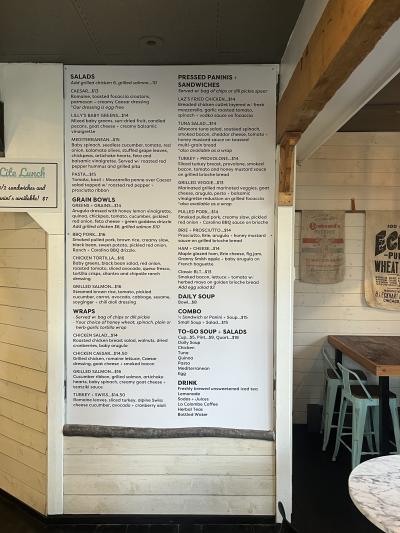 Lite Lunch
1/2 sandwiches and
available! $7
SALADS
Add grilled chicken 6, grilled salmon...10
CAESAR...$13
Romaine, toasted focaccia croutons,
parmesan + creamy Caesar dressing
*Our dressing is egg free
LILLY'S BABY GREENS...$14
Mixed baby greens, sun dried fruit, candied
pecans, goat cheese + creamy balsamic
vinaigrette
MEDITERRANEAN...$15
Baby spinach, seedless cucumber, tomato, red
onion, kalamata olives, stuffed grape leaves,
chickpeas, artichoke hearts, feta and
balsamic vinaigrette. Served w/ roasted red
pepper hummus and grilled pita
PASTA...$15
Tomato, basil + Mozzarella penne over Caesar
salad topped w/ roasted red pepper +
prosciutto ribbon
GRAIN BOWLS
GREENS + GRAINS...$14
Arugula dressed with honey lemon vinaigrette,
quinoa, chickpeas, tomato, cucumber, pickled
red onion, feta cheese + green goddess drizzle
Add grilled chicken $6, grilled salmon $10
BBQ PORK...$16
Smoked pulled pork, brown rice, creamy slaw,
black bean, sweet potato, pickled red onion,
Ranch + Carolina BBQ drizzle.
CHICKEN TORTILLA...$16
Baby greens, black bean salad, red onion,
roasted tomato, sliced avocado, queso fresco,
tortilla crisps and chipotle ranch
dressing
GRILLED SALMON...$18
Steamed brown rice, tomato, pickled
cucumber, carrot, avocado, cabbage, sesame,
soy/ginger + chili aioli dressing
WRAPS
- Served w/ bag of chips or dill pickle
- Your choice of honey wheat, spinach, plain or
herb-garlic tortilla wrap
CHICKEN SALAD...$14
Roasted chicken breast salad, walnuts, dried
cranberries, baby arugula
CHICKEN CAESAR...$14.50
Grilled chicken, romaine lettuce, Caesar
dressing, goat cheese + smoked bacon
GRILLED SALMON...$16
Cucumber ribbon, grilled salmon, artichoke
hearts, baby spinach, creamy goat cheese +
tzatziki sauce
TURKEY + SWISS...$14.50
Romaine leaves, sliced turkey, alpine Swiss
cheese cucumber, avocado + cranberry aioli
PRESSED PANINIS +
SANDWICHES
Served w/ bag of chips or dill pickle spear
LAZ'S FRIED CHICKEN...$14
Breaded chicken cutlet layered w/ fresh
mozzarella, garlic roasted tomato,
spinach + vodka sauce on focaccia
TUNA SALAD...$14
Albacore tuna salad, sautéed spinach,
smoked bacon, cheddar cheese, tomato +
honey mustard sauce on toasted
multi-grain bread
*also available as a wrap
TURKEY + PROVOLONE...$14
Sliced turkey breast, provolone, smoked
bacon, tomato and honey mustard sauce
on grilled brioche bread
GRILLED VEGGIE...$13
Marinated grilled marinated veggies, goat
cheese, arugula, pesto + balsamic
vinaigrette reduction on grilled focaccia
*also available as a wrap
PULLED PORK...$14
Smoked pulled pork, creamy slaw, pickled
red onion + Carolina BBQ sauce on brioche
BRIE + PROSCIUTTO...$14
Prosciutto, Brie, arugula + honey mustard
sauce on grilled brioche bread
HAM + CHEESE...$14
Maple glazed ham, Brie cheese, fig jam,
Granny Smith apple + baby arugula on
French baguette
Classic BLT...$13
Smoked bacon, lettuce + tomato w/
herbed mayo on golden brioche bread
Add egg salad $2
DAILY SOUP
Bowl...$8
COMBO
½ Sandwich or Panini + Soup...$15
Small Soup + Salad...$15
TO-GO SOUP + SALADS
Cup...$5, Pint...$9, Quart...$18
Daily Soup
Chicken
Tuna
Quinoa
Pasta
Mediterranean
Egg
DRINK
Freshly brewed unsweetened iced tea
Lemonade
Sodas + Juices
La Colombe Coffee
Herbal Teas
Bottled Water
100
WHEAT